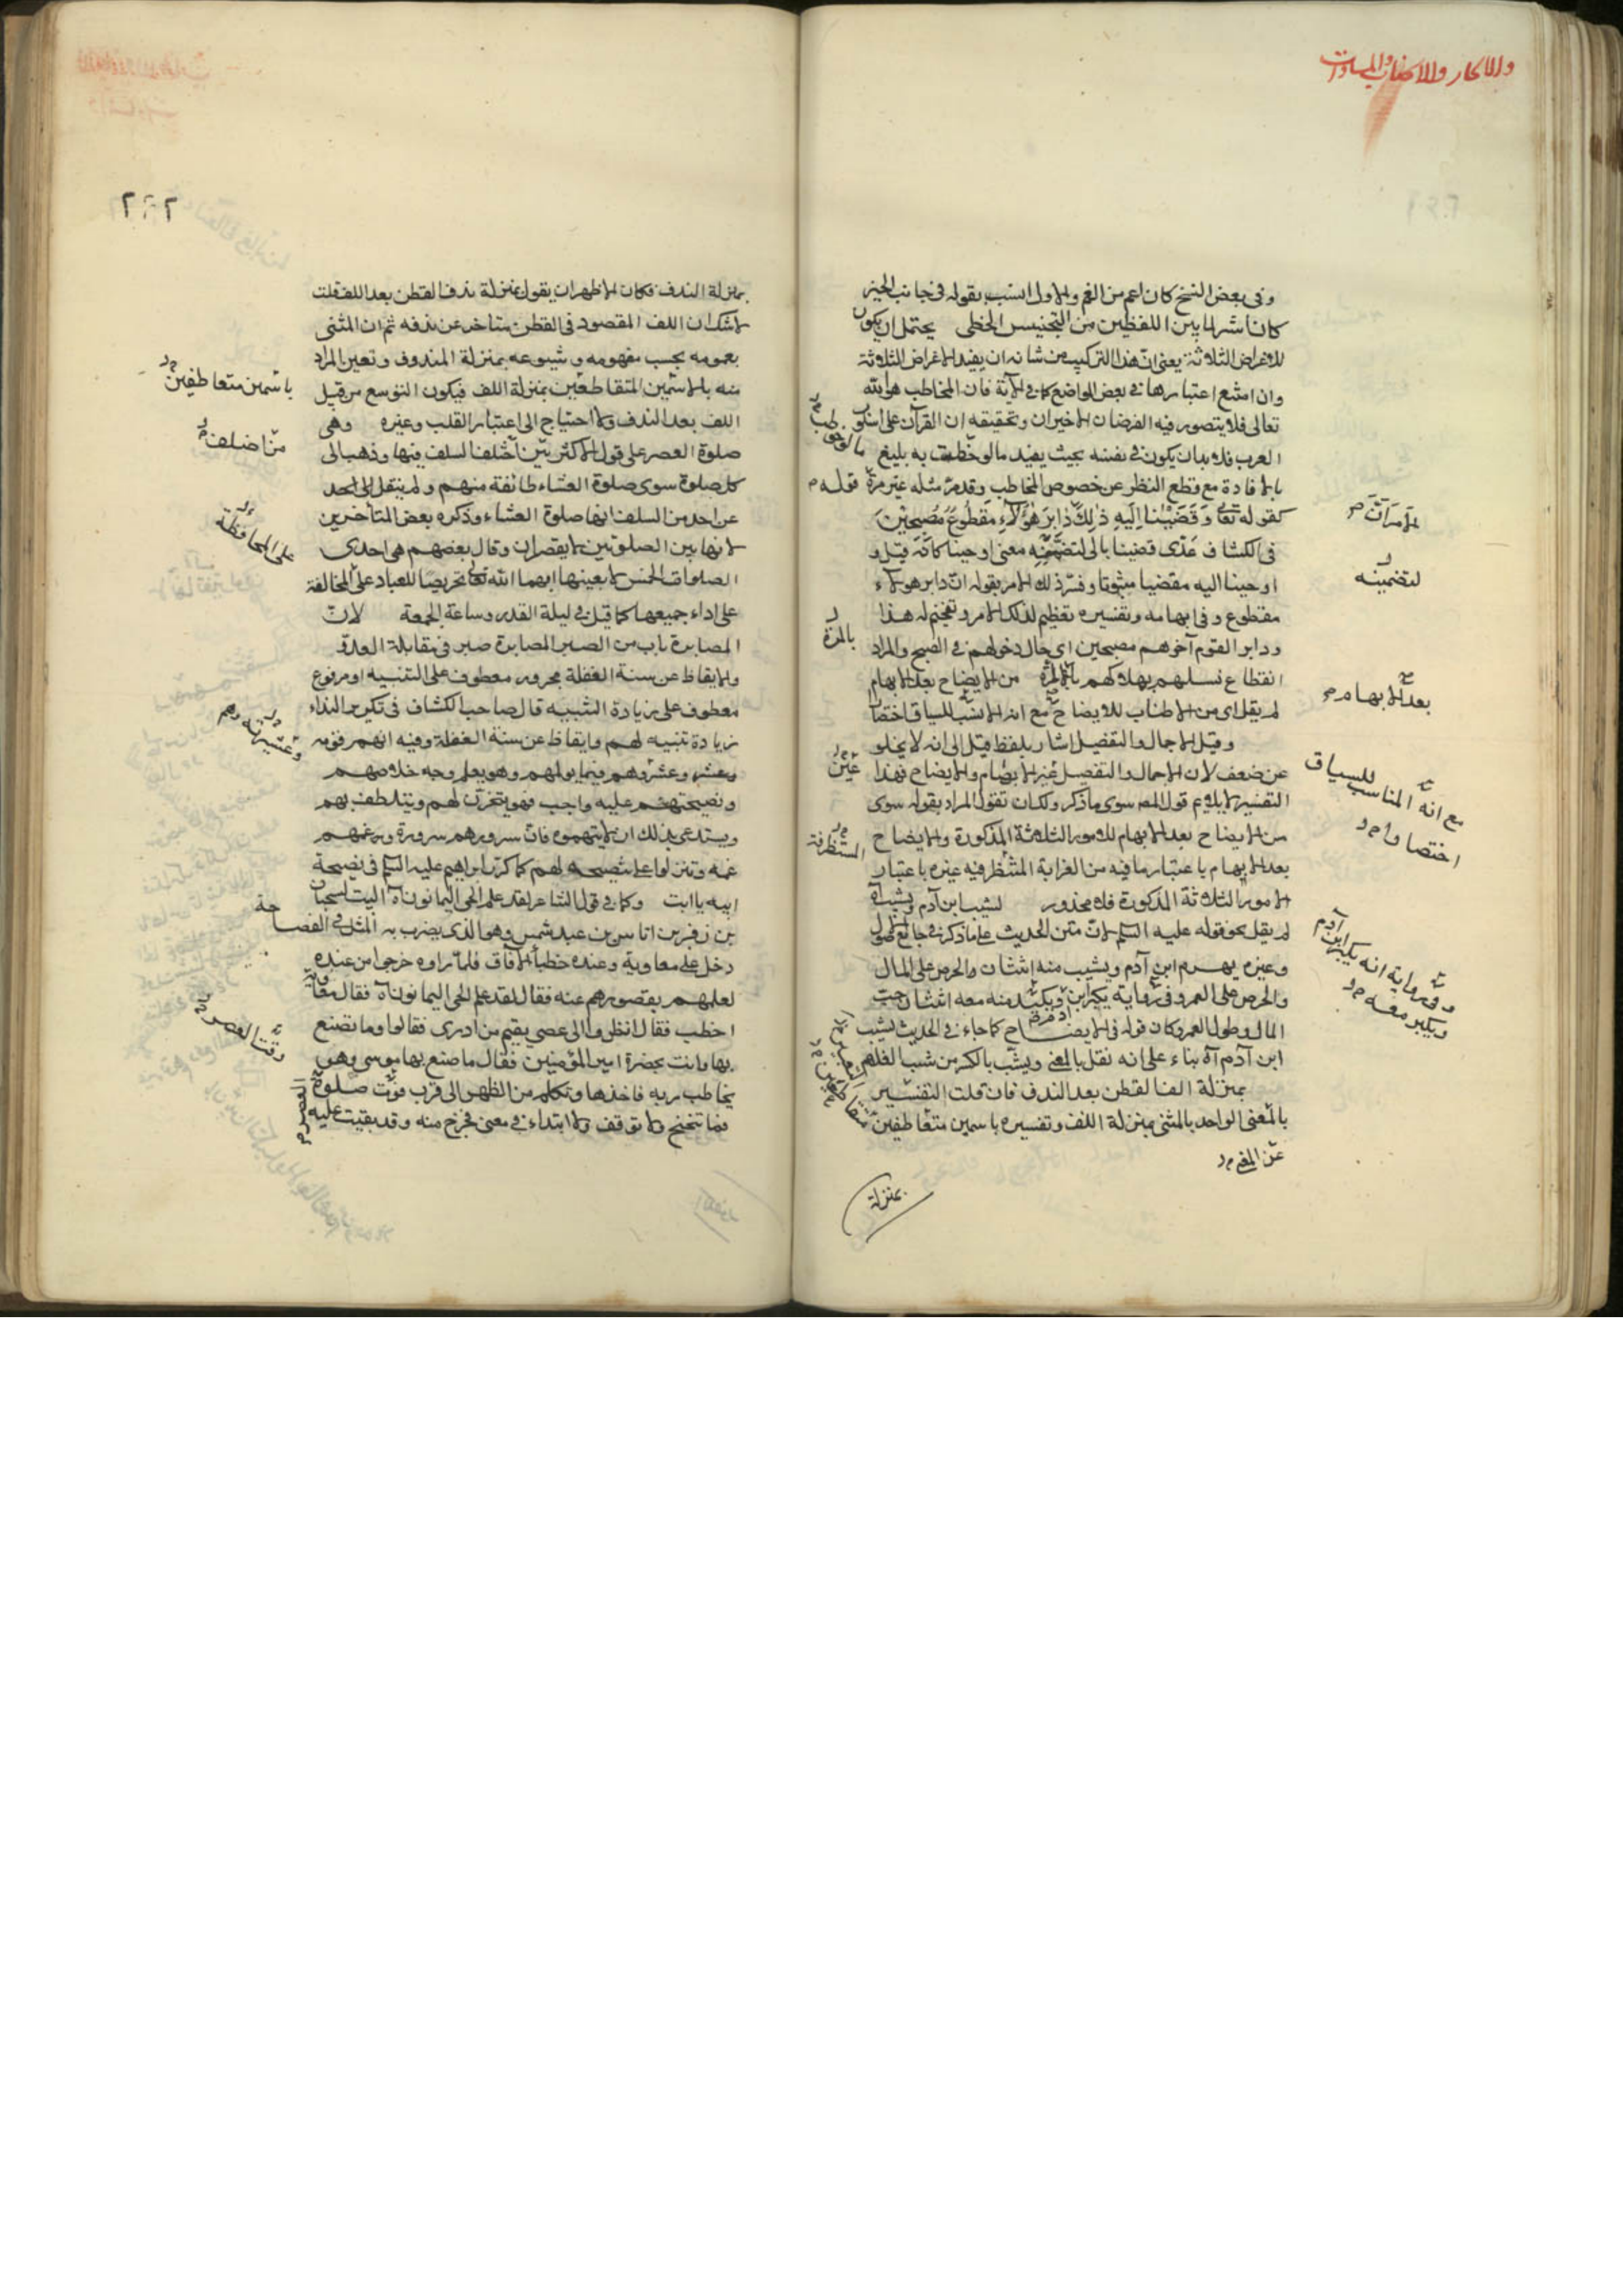 وفى بعض النسخ كان اعم من الغم والاول انسب بقوله فى جانب الخبر
كان اشر لما بين اللفظين من التجنيس الخطى يحتمل ان يكون
للاغراض الثلاثة يعنى ان هذا التركيب من شانه ان يفيد الاغراض الثلاثة
وان امتنع اعتبارها فى بعض المواضع كما فى الآية فان المخاطب هو الله
تعالى فلا يتصور فيه الغرضان الاخيران وتحقيقه ان القرآن على اسلوب
العرب فلا بد ان يكون فى نفسه بحيث يفيد ما لو خطب به بليغ
بالافادة مع قطع النظر عن خصوص المخاطب وقد مر مثله غير مرة قوله
كقوله تعا وقضينا اليه ذلك دابر هؤلاء مقطوع مصبحين
فى الكشاف عدى قضينا بالى لتضمنه معنى اوحينا كانه قيل و
اوحينا اليه مقضيا مبثوتا وفسر ذلك الامر بقوله ان دابر هولاء
مقطوع وفى ابهامه وتفسيره تعظيم لذلك الامر وتفخيم له هذا
ودابر القوم آخرهم مصبحين اى حال دخولهم فى الصبح والمراد
انقطاع نسلهم بهلاكهم بالمرة من الايضاح بعد الابهام
لم يقل اى من الاطناب للايضاح مع انه الانسب للسياق اختصارا
وقيل الاجمال والتفصيل اشار بلفظ قيل الى انه لا يخلو
عن ضعف لان الاجمال والتفصيل غير الابهام والايضاح فهذا
التفسير لا يلايم قول المص سوى ما ذكر ولك ان تقول المراد بقوله سوى
من الايضاح بعد الابهام للامور الثلاثة المذكورة والايضاح
بعد الابهام باعتبار ما فيه من الغرابة المستظرفة غيره باعتبار
الامور الثلاثة المذكورة فلا محذور لشيب ابن آدم ويشب آه
لم يقل نحو قوله عليه السلم لان متن الحديث على ما ذكر فى جامع الاصول
وغيره يهرم ابن آدم ويشب منه اثنتان الحرص على المال
والحرص على العمر وفى رواية يكبر ابن آدم ويكبر منه معه اثنتان حب
المال وطول العمر وكان قوله فى الايضاح كما جاء فى الحديث لشيب
ابن آدم آه بناء على انه نقل بالمعنى ويشب بالكسر من شب الغلام
بمنزلة الف القطن بعد الندف فان قلت التفسير
بالمعنى الواحد بالمثنى بمنزلة اللف وتفسيره باسمين متعاطفين
عن المعنى
بمنزلة
بعد الابهام
لتضمينه
مع انه المناسب للسياق
اختصارا
وفى رواية انه يكبر ابن آدم
ويكبر معه
٢٩٢
بمنزلة الندف فكان الاظهر ان يقول بمنزلة ندف القطن بعد اللف قلت
لا شك ان اللف المقصود فى القطن متاخر عن ندفه ثم ان المثنى
بعمومه بحسب مفهومه وشيوعه بمنزلة المندوف وتعين المراد
منه بالاسمين المتعاطفين بمنزلة اللف فيكون التوسع من قبيل
اللف بعد الندف ولا احتياج الى اعتبار القلب وغيره وهى
صلوة العصر على قول الاكثرين اختلف السلف فيها وذهب الى
كل صلوة سوى صلوة العشاء طائفة منهم ولم ينتقل الى احد
عن احد من السلف انها صلوة العشاء وذكره بعض المتأخرين
لانها بين الصلوتين لا يقصران وقال بعضهم هى احدى
الصلوات الخمس لا بعينها ابهمها الله تعا تحريضا للعباد على المحافظة
على اداء جميعها كما قيل فى ليلة القدر وساعة الجمعة لان
المصابرة باب من الصبر المصابرة صبر فى مقابلة العدو
والايقاظ عن سنة الغفلة مجرور معطوف على التنبيه او مرفوع
معطوف على زيادة التنبيه قال صاحب الكشاف فى تكرير النداء
زيادة تنبيه لهم وايقاظ عن سنة الغفلة وفيه انهم قومه
وعشيرته وهم فيما يوبقهم وهو يعلم وجه خلاصهم
ونصيحتهم عليه واجب فهو يتحزن لهم ويتلطف بهم
ويستدعى بذلك ان لا يتهموه فان سرورهم سروره وغمهم
غمه وتنزلوا على نصيحته لهم كما كرر ابراهيم عليه السلم فى نصيحة
ابيه يا ابت وكما فى قول الشاعر لقد علم الحى اليمانون آه البيت لسحبان
بن زفر بن اناس بن عبد شمس وهو الذى يضرب به المثل فى الفصاحة
دخل على معاوية وعنده خطباء الافاق فلما راوه خرجوا من عنده
لعلمهم بقصورهم عنه فقال لقد علم الحى اليمانون آه فقال معاوية
اخطب فقال انظروا الى عصى يقيم من ادرى فقالوا وما تصنع
بها وانت بحضرة امير المؤمنين فقال ما صنع بها موسى وهو
يخاطب ربه فاخذها وتكلم من الظهر الى قرب فوت صلوة العصر
فما تنحنح ولا توقف ولا ابتداء فى معنى فخرج منه وقد بقيت عليه
باسمين متعاطفين
على المحافظة
وعشيرته وهم
وقت العصر